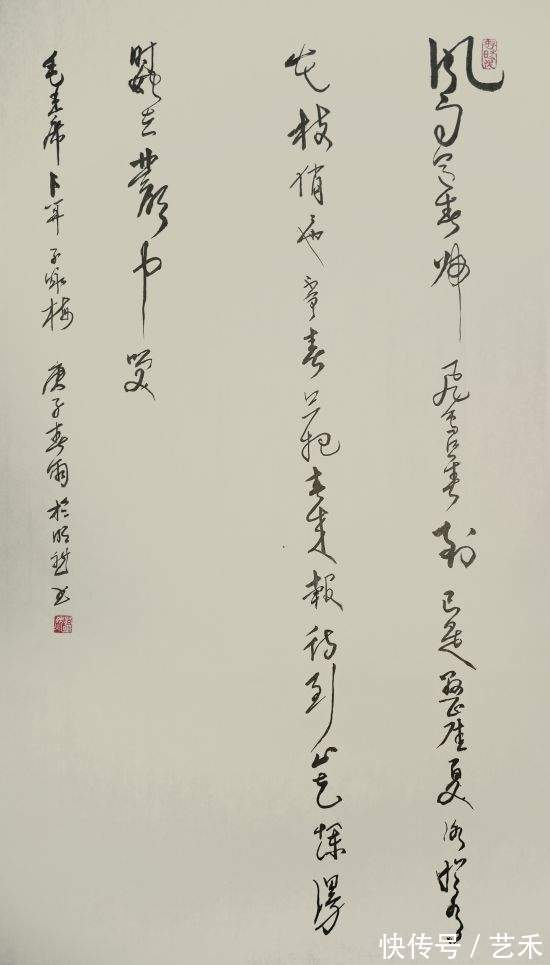 風雨送春归飛雪迎春到已是懸崖百丈冰犹有
花枝俏俏也不争春只把春来報待到山花爛漫
時她在叢中笑
毛主席卜算子咏梅 庚子春雨於明书
快传号/艺禾